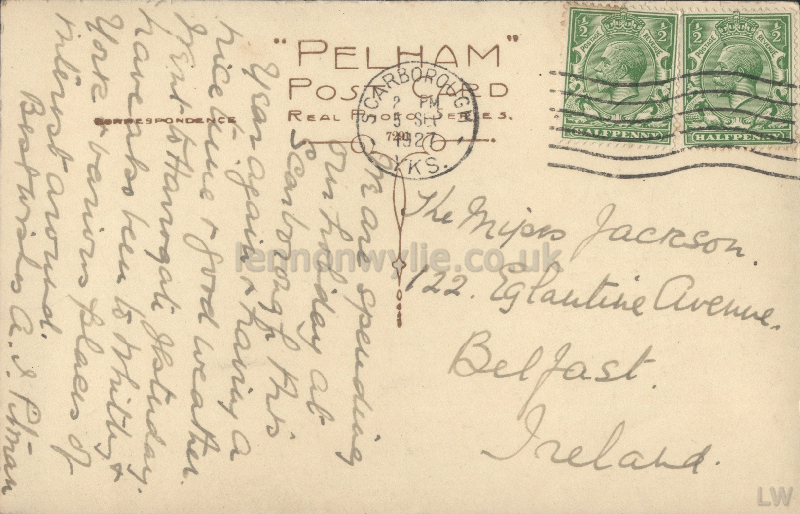 "PELHAM"
POST CARD
REAL PHOTO SERIES.
CORRESPONDENCE
SCARBOROUGH
2 PM
5 SEP
1927
YKS.
POSTAGE REVENUE
½ ½
HALFPENNY
POSTAGE REVENUE
½ ½
HALFPENNY
We are spending
our holiday at
Scarborough this
Year again & having a
nice time & good weather.
Went to Harrogate Yesterday.
have also been to Whitby &
York & various places of
interest around.
Best wishes A. J. Pitman
The Misses Jackson.
122. Eglantine Avenue.
Belfast.
Ireland.
lennonwylie.co.uk
LW